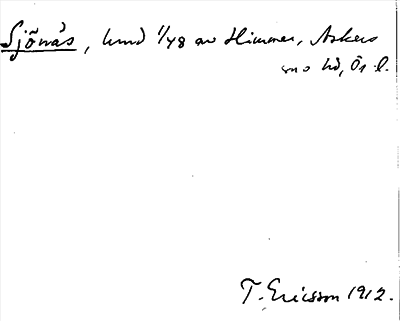 Sjönäs, lmd 1/48 av Himmer, Askers
sn o hd, Ör. l.
T. Ericsson 1912.